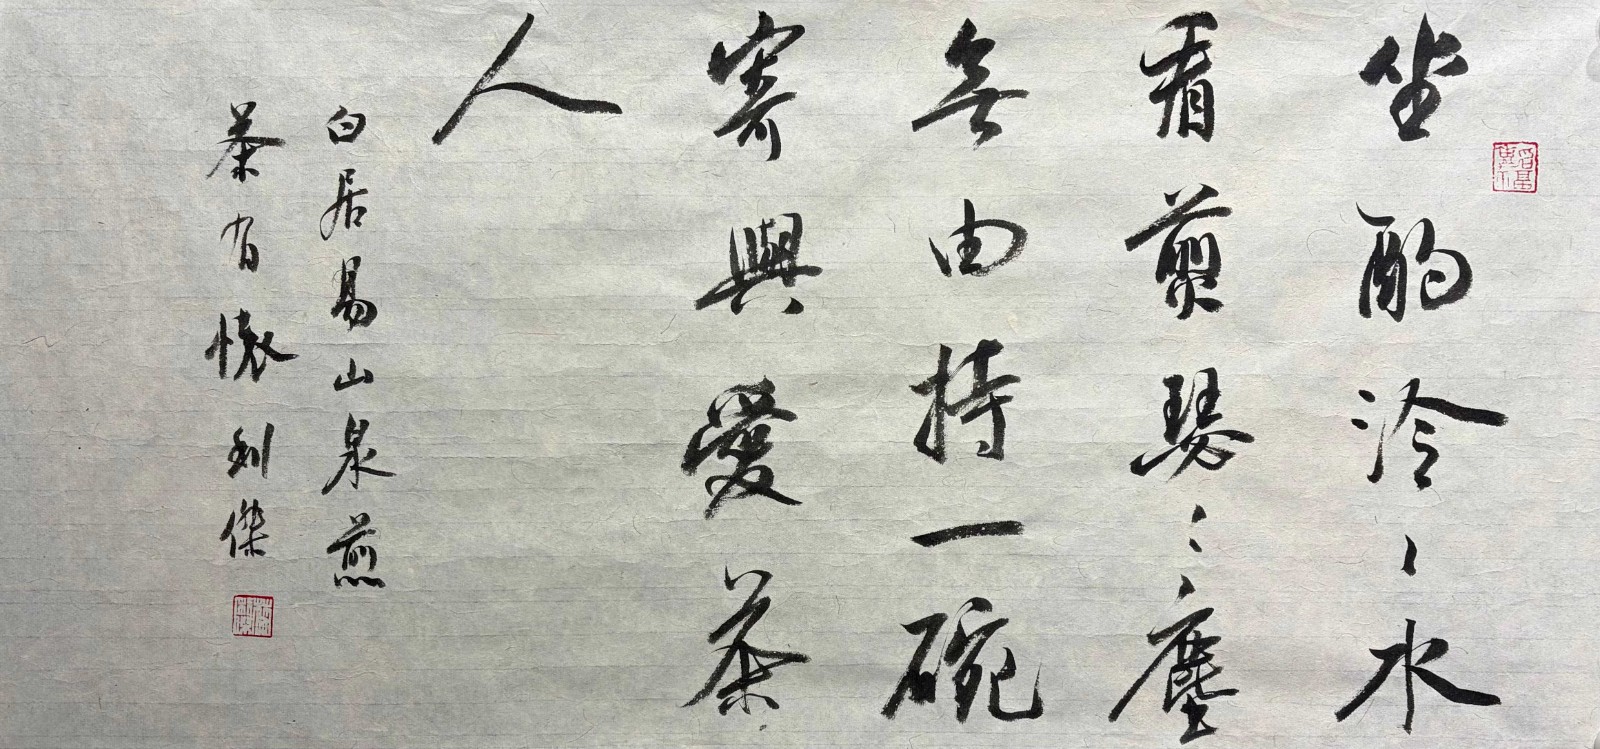 坐酌泠々水
看煎瑟々塵
無由持一碗
寄與愛茶
人
白居易山泉煎
茶有懷 利傑